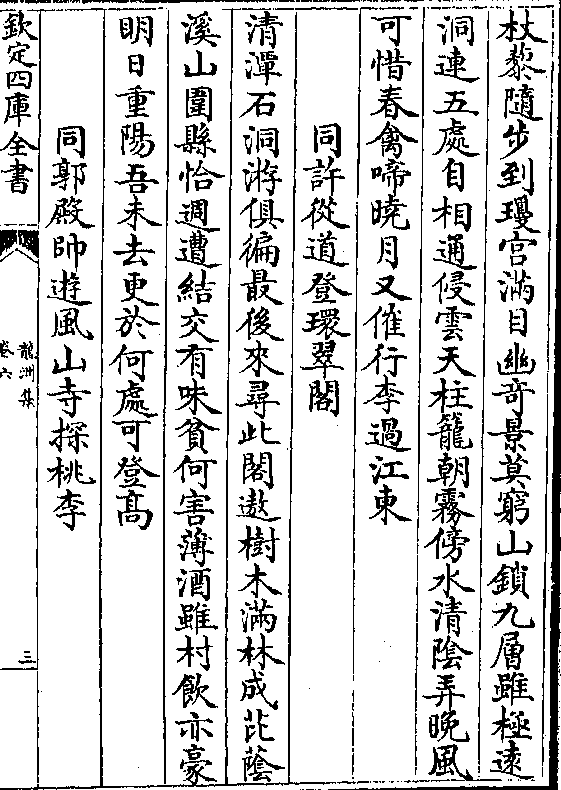 杖藜隨步到瓊宮滿目幽奇景莫窮山鎖九層雖極遠
洞連五處自相通侵雲天柱籠朝霧傍水清陰弄晚風
可惜春禽啼曉月又催行李過江東
同許從道登環翠閣
清潭石洞游俱徧最後來尋此閣遨樹木滿林成芘蔭
溪山圍縣恰週遭結交有味貧何害薄酒雖村飲亦豪
明日重陽吾未去更於何處可登髙
同郭殿帥遊風山寺探桃李
欽定四庫全書
龍洲集
卷六
三